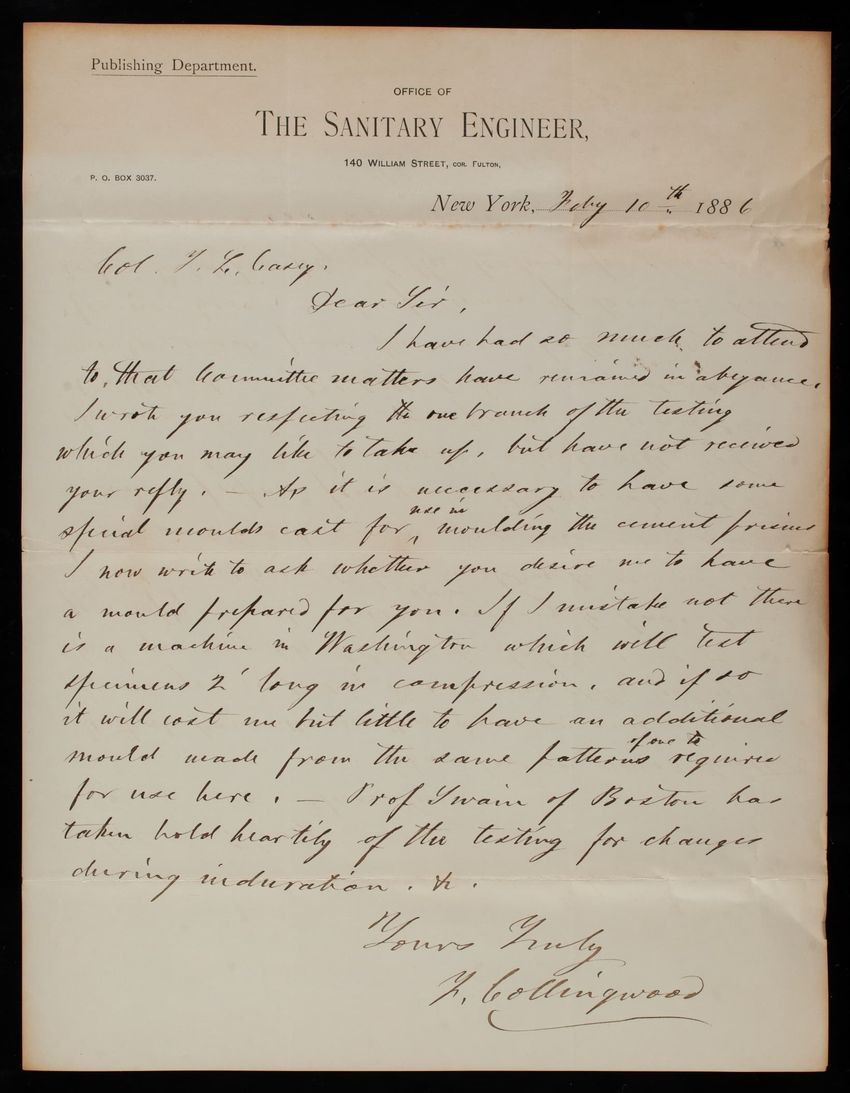 Publishing Department.
OFFICE OF
THE SANITARY ENGINEER,
140 WILLIAM STREET, COR. FULTON,
P. O. BOX 3037.
New York, Feby 10th 1886
Col. T. L. Casey.
Dear Sir,
I have had so much to attend
to, that Committee matters have remained in abeyance.
I wrote you respecting the one branch of the testing
which you may like to take up, but have not received
your reply. – As it is necessary to have some
special moulds cast for use in moulding the cement prisms
I now write to ask whether you desire me to have
a mould prepared for you. If I mistake not there
is a machine in Washington which will test
specimens 2' long in compression, and if so
it will cost me but little to have an additional
mould made from the same patterns required
for use here. – Prof Swain of Boston has
taken hold heartily of the testing for changes
during induration. &c.
Yours Truly
F. Collingwood